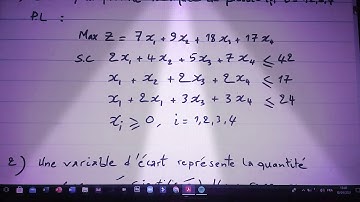 PL :
Max Z = 7x₁ + 9x₂ + 18x₃ + 17x₄
S.C 2x₁ + 4x₂ + 5x₃ + 7x₄ ≤ 42
x₁ + x₂ + 2x₃ + 2x₄ ≤ 17
x₁ + 2x₂ + 3x₃ + 3x₄ ≤ 24
xᵢ ≥ 0, i = 1,2,3,4
2) Une variable d'écart représente la quantité